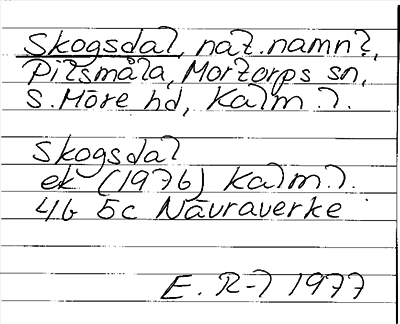 Skogsdal, nat.namn?,
Pilsmåla, Mortorps sn,
S. Möre hd, Kalm. l.
Skogsdal
ek (1976) Kalm. l.
4G 5c Nävraverke
E. R-l 1977